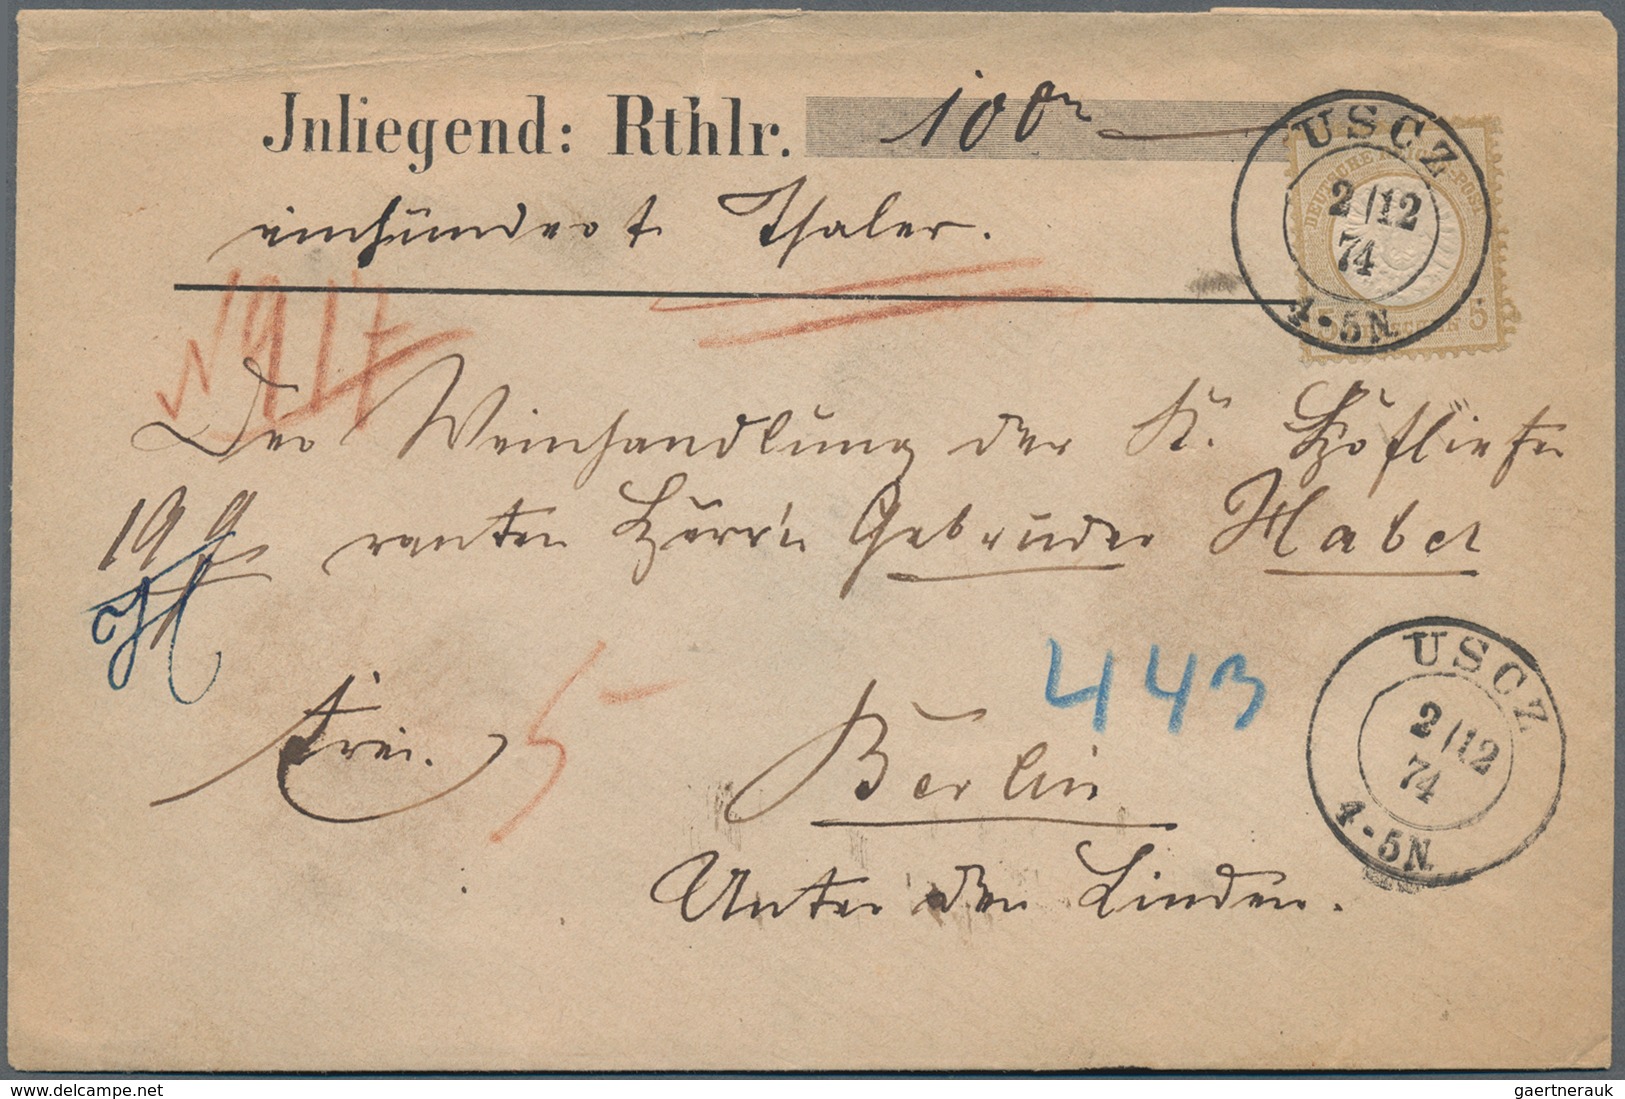 Jnliegend: Rthlr. 100
einhundert Thaler.
USCZ
DEUTSCHE REICHS-POST
2/12
74
4-5N.
5 GROSCHEN 5
N 917
Der Weinhandlung der K. Hofliefe
ranten Herrn Gebrüder Habel
443
frei.
5
Berlin
Unter den Linden.
USCZ
2/12
74
4-5N.
www.delcampe.net
gaertnerauk